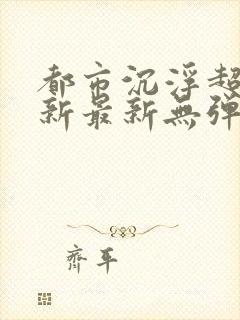 都市沉浮超
新最新無彈
齊平